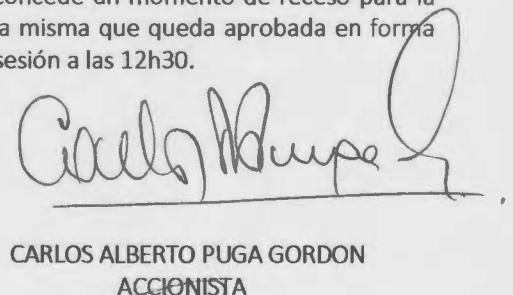 concede un momento de receso para la
a misma que queda aprobada en forma
sesión a las 12h30.
CARLOS ALBERTO PUGA GORDON
ACCIONISTA